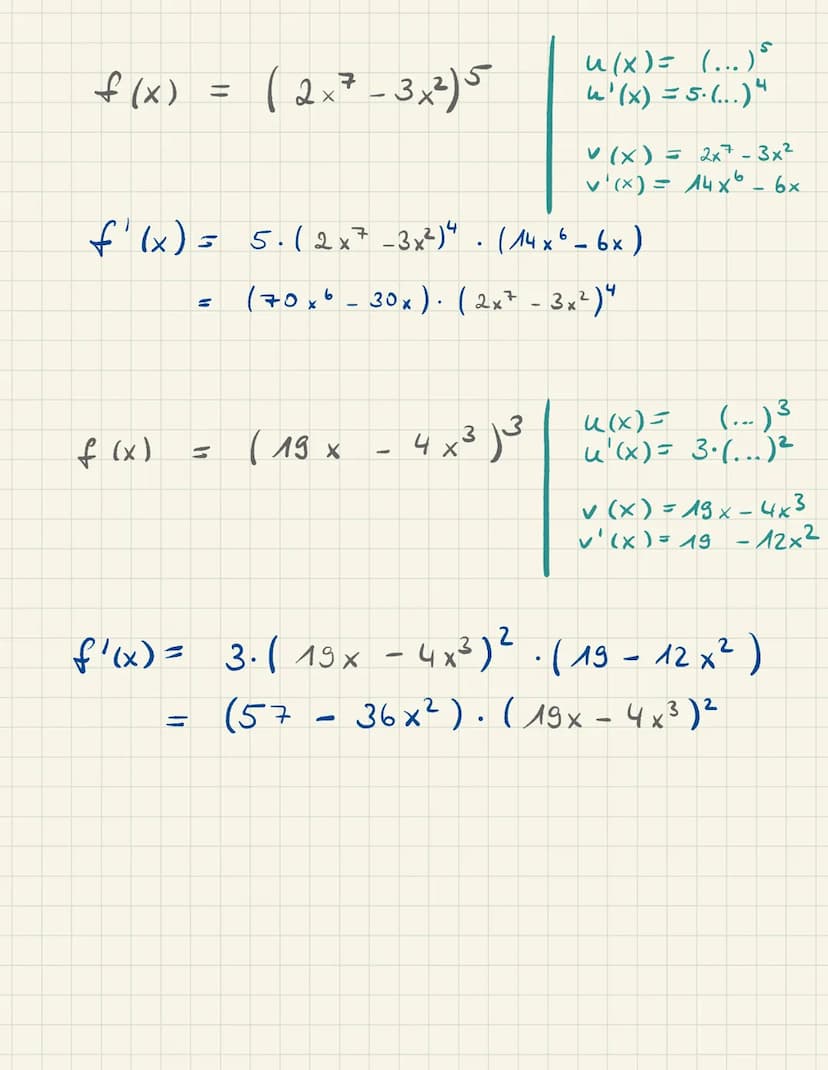 f(x) = (2x⁷ - 3x²)⁵
u(x) = (...)⁵
u'(x) = 5·(...)⁴
v(x) = 2x⁷ - 3x²
v'(x) = 14x⁶ - 6x
f'(x) = 5·(2x⁷ - 3x²)⁴ · (14x⁶ - 6x)
= (70x⁶ - 30x)·(2x⁷ - 3x²)⁴
f(x) = (19x - 4x³)³
u(x) = (...)³
u'(x) = 3·(...)²
v(x) = 19x - 4x³
v'(x) = 19 - 12x²
f'(x) = 3·(19x - 4x³)² · (19 - 12x²)
= (57 - 36x²)·(19x - 4x³)²